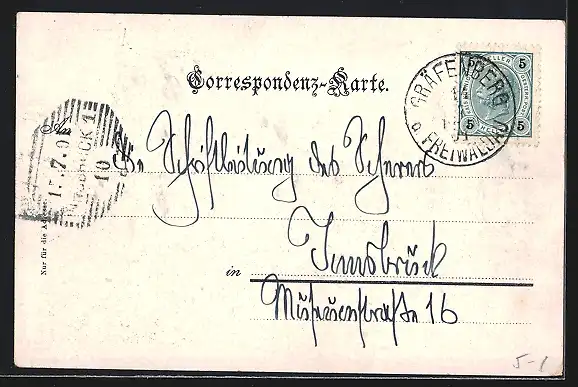 Correspondenz-Karte.
GRÄFENBERG
b. FREIWALDAU
5 HELLER 5
5 5
An die Schriftleitung des Scherers
in Innsbruck
Museumstraße 16
Nur für die Adresse.
INNSBRUCK 1
10
5-1